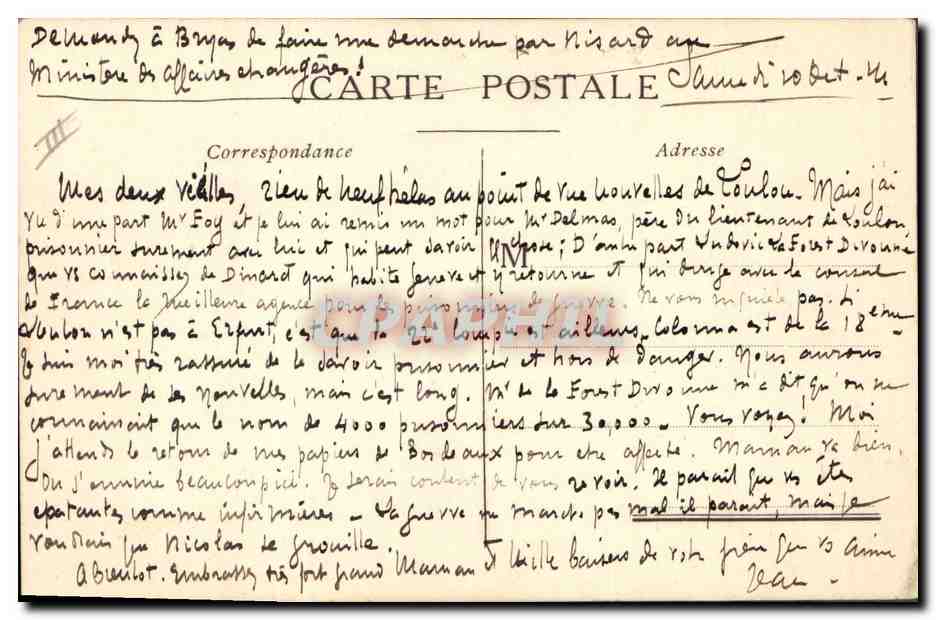 Demandez à Bryas de faire une demarche par Nisard au
Ministère des affaires etrangères!
CARTE POSTALE
Samedi 10 Oct - 14
III
Correspondance
Adresse
Mes deux vieilles, rien de neuf hélas au point de vue nouvelles de Loulou. Mais j'ai
vu d'une part Mr Foy et je lui ai remis un mot pour Mr Delmas, père du lieutenant de Loulou
prisonnier surement avec lui et qui peut savoir qq chose; D'autre part Ludovic de la Forest Divonne
que vs connaissez de Dinard qui habite Geneve et y retourne et qui dirige avec le consul
de France la meilleure agence pour les prisonniers de guerre. Ne vous inquiétez pas. Si
Loulou n'est pas à Erfurt, c'est que la 22e Comp. est ailleurs. Colonna est de la 18eme
Je suis moi très rassuré de le savoir prisonnier et hors de danger. Nous aurons
surement de ses nouvelles, mais c'est long. Mr de la Forest Divonne m'a dit qu'on ne
connaissait que le nom de 4000 prisonniers sur 30,000. Vous voyez! Moi
j'attends le retour de mes papiers de Bordeaux pour etre affecté. Maman va bien.
On s'ennuie beaucoup ici. Je serais content de vous revoir. Il parait que vs êtes
epatantes comme infirmières - La guerre ne marche pas mal il parait, mais je
voudrais que Nicolas se grouille.
A Bientot. Embrassez très fort grand Maman et Mille baisers de votre frère qui vs aime
Jean -
CPAPHIL